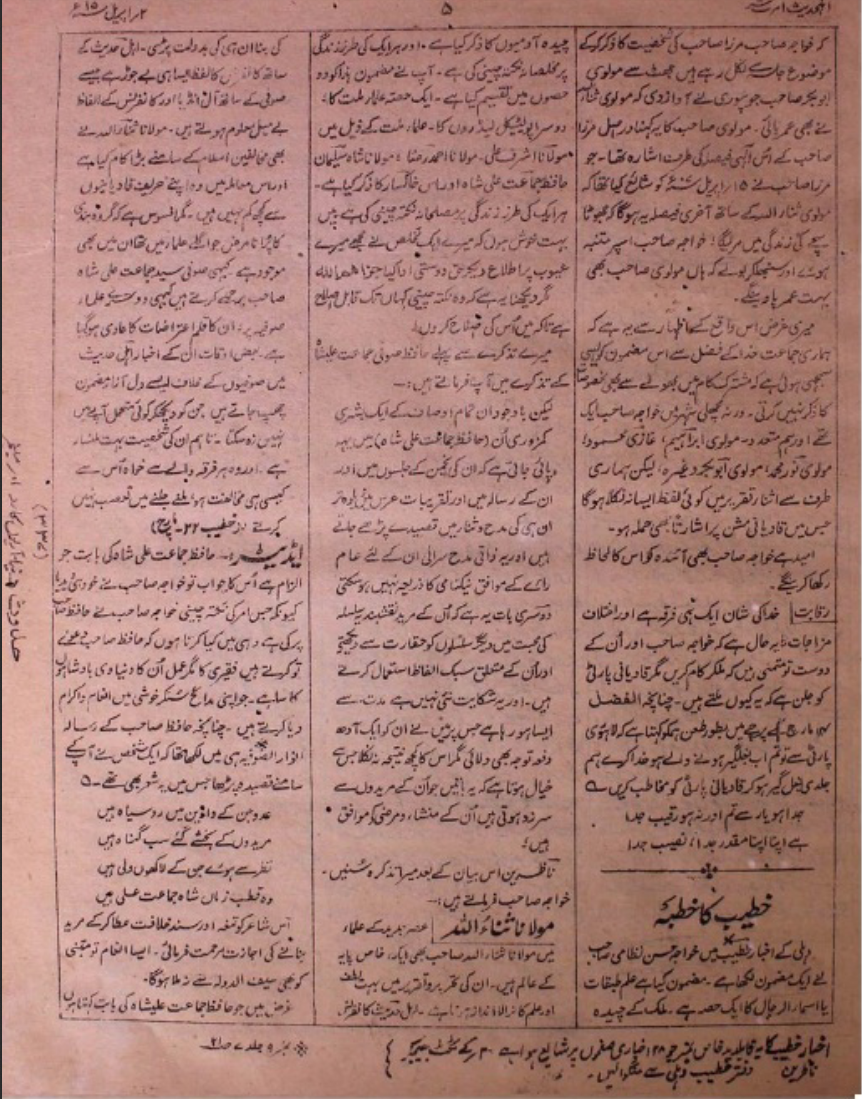 ۵
کہ خواجہ صاحب مرزا صاحب کی شخصیت کا ذکر کرکے
موضوع جلسہ سے نکل رہے ہیں جھٹ سے مولوی
ابویحیٰ صاحب جو سوری نے آواز دی کہ مولوی ثناء اللہ
نے بھی عمر پائی۔ مولوی صاحب کا یہ کہنا دراصل مرزا
صاحب کے اُس الٰہی فیصلہ کی طرف اشارہ تھا۔ جو
مرزا صاحب نے ۱۵ اپریل کو شائع کیا تھا کہ
مولوی ثناء اللہ کے ساتھ آخری فیصلہ یہ ہوگا کہ جھوٹا
سچے کی زندگی میں مریگا! خواجہ صاحب اسپر متنبہ
ہوئے اور سنبھلکر بولے کہ ہاں مولوی صاحب بھی
بہت عمر پاوینگے۔
میری غرض اس واقع کے اظہار سے یہ ہے کہ
ہماری جماعت خدا کے فضل سے اس مضمون کو ایسی
سمجھی ہوئی ہے کہ مشترک کام میں بھولے سے بھی خصوصیات
کا ذکر نہیں کرتی۔ ورنہ خواجہ صاحب ایک
تھے اور ہم متعدد۔ مولوی ابراہیم، غازی محمود،
مولوی نور محمد، مولوی ابویحیٰ وغیرہ، لیکن ہماری
طرف سے اثناء تقریر میں کوئی لفظ ایسا نہ نکلا ہوگا
جس میں قادیانی مشن پر اشارتاً بھی حملہ ہو۔
امید ہے خواجہ صاحب بھی آئندہ کو اس کا لحاظ
رکھا کریں گے۔
رقابت | خدا کی شان ایک ہی فرقہ ہے اور اختلاف
مزاجات کا یہ حال ہے کہ خواجہ صاحب اور اُن کے
دوست تو متمنی ہیں کہ ملکر کام کریں مگر قادیانی پارٹی
کو جلن ہے کہ یہ کیوں ملتے ہیں۔ چنانچہ الفضل
مارچ کے پرچے میں بطور طعن ہمکو کہتا ہے کہ لاہوری
پارٹی سے تو تم اب بغلگیر ہونے والے ہو خدا کرے ہم
جلدی بغل گیر ہوکر قادیانی پارٹی کو مخاطب کریں ؎
جدا ہو یار سے تم اور نہ ہو رقیب جدا
ہے اپنا اپنا مقدر جدا، نصیب جدا
خطیب کا خطبہ
دہلی کے اخبار خطیب میں خواجہ حسن نظامی صاحب
نے ایک مضمون لکھا ہے۔ مضمون کیا ہے علم طبقات
یا اسماء الرجال کا ایک حصہ ہے۔ ملک کے چیدہ
چیدہ آدمیوں کا ذکر کیا ہے۔ اور ہر ایک کی طرز زندگی
پر مخلصانہ نکتہ چینی کی ہے۔ آپ نے مضمون ہذا کو دو
حصوں میں تقسیم کیا ہے۔ ایک حصہ علماء ملت کا،
دوسرا پولیٹیکل لیڈروں کا۔ علماء ملت کے ذیل میں
مولانا اشرف علی۔ مولانا احمد رضا، مولانا شاہ سلیمان
حافظ جماعت علی شاہ اور اس خاکسار کا ذکر کیا ہے۔
ہر ایک کی طرز زندگی پر مصلحانہ نکتہ چینی کی ہے میں
بہت خوش ہوں کہ میرے ایک مخلص نے مجھے میرے
عیوب پر اطلاع دیکر حق دوستی ادا کیا جزاھم اللہ
مگر دیکھنا یہ ہے کہ وہ نکتہ چینی کہاں تک قابل اصلاح
ہے تاکہ میں اُس کی اصلاح کروں!
میرے تذکرے سے پہلے حافظ صوفی جماعت علیشاہ
کے تذکرے میں آپ فرماتے ہیں:-
لیکن باوجود ان تمام اوصاف کے ایک بشری
کمزوری اُن (حافظ جماعت علی شاہ) میں یہ
پائی جاتی ہے کہ ان کی انجمن کے جلسوں میں اور
ان کے رسالہ میں اور تقریبات عرس میں
ان ہی کی مدح و ثنا میں قصیدے پڑھے جاتے
ہیں اور یہ ذاتی مدح سرائی ان کے لئے عام
رائے کے موافق نیکنامی کا ذریعہ نہیں ہوسکتی
دوسری بات یہ ہے کہ اُن کے مرید نقشبندیہ سلسلہ
کی محبت میں دیگر سلسلوں کو حقارت سے دیکھتے
اور اُن کے متعلق سبک الفاظ استعمال کرتے
ہیں۔ اور یہ شکایت نئی نہیں ہے مدت سے
ایسا ہو رہا ہے جس پر میں نے ان کو ایک آدھ
دفعہ توجہ بھی دلائی مگر اس کا کچھ نتیجہ نہ نکلا جس سے
خیال ہوتا ہے کہ یہ باتیں جو اُن کے مریدوں سے
سرزد ہوتی ہیں اُن کے منشاء و مرضی کے موافق
ہیں؛
ناظرین اس بیان کے بعد میرا تذکرہ سنیں۔
خواجہ صاحب فرماتے ہیں:-
مولانا ثناء اللہ | عنصر جدید کے علماء
میں مولانا ثناء اللہ صاحب بھی ایک خاص پایہ
کے عالم ہیں۔ ان کی تحریر و تقریر میں بہت لطف
اور علم کا نرالا انداز ہوتا ہے۔ اہل حدیث کانفرنس
کی بنا ان ہی کی بدولت پڑی۔ اہل حدیث کے
ساتھ کانفرنس کا لفظ ایسا ہی بے جوڑ ہے جیسے
صوفی کے ساتھ آل انڈیا اور کانفرنس کے الفاظ
بے میل معلوم ہوتے ہیں۔ مولانا ثناء اللہ نے
بھی مخالفین اسلام کے سامنے بڑا کام کیا ہے
اور اس معاملہ میں وہ اپنے حریف قادیانیوں
سے کچھ کم نہیں ہیں۔ مگر افسوس ہے کہ گروہ بندی
کا پرانا مرض جو اگلے علماء میں تھا ان میں بھی
موجود ہے۔ کبھی صوفی سید جماعت علی شاہ
صاحب پر حملے کرتے ہیں کبھی دوسرے علماء
صوفیہ پر؛ ان کا قلم اعتراضات کا عادی ہوگیا
ہے۔ بعض اوقات ان کے اخبار اہل حدیث
میں صوفیوں کے خلاف ایسے دل آزار مضمون
چھپ جاتے ہیں جن کو دیکھکر کوئی متحمل آپے میں
نہیں رہ سکتا۔ تاہم ان کی شخصیت بہت ملنسار
ہے۔ اور وہ ہر فرقہ والے سے خواہ اُس سے
کیسی ہی مخالفت ہو، ملنے جلنے میں تعصب نہیں
کرتے (از خطیب ۲۲۔ مارچ)
ایڈیٹر:- حافظ جماعت علی شاہ کی بابت جو
الزام ہے اُس کا جواب تو خواجہ صاحب نے خود ہی دیدیا
کیونکہ جس امر کی نکتہ چینی خواجہ صاحب نے حافظ صاحب
پر کی ہے وہی میں کیا کرتا ہوں کہ حافظ صاحب دعوے
تو کرتے ہیں فقیری کا مگر عمل اُن کا دنیاوی بادشاہوں
کا سا ہے۔ جو اپنی مدائح سنکر خوشی میں انعام و اکرام
دیا کرتے ہیں۔ چنانچہ حافظ صاحب کے رسالہ
انوار الصوفیہ ہی میں لکھا تھا کہ ایک شخص نے آپ کے
سامنے قصیدہ پڑھا جس میں یہ شعر بھی تھے۔ ؎
عدو جن کے داؤین میں روسیاہ ہیں
مریدوں کے بخشے گئے سب گناہ ہیں
نظر سے ہوئے جن کے لاکھوں ولی ہیں
وہ قطب زماں شاہ جماعت علی ہیں
اُس شاعر کو تمغہ اور سند خلافت عطا کرکے مرید
بنانے کی اجازت مرحمت فرمائی۔ ایسا انعام تو متنبی
کو بھی سیف الدولہ سے نہ ملا ہوگا۔
غرض میں جو حافظ جماعت علیشاہ کی بابت کہتا ہوں
(۳۳۷)
اخبار خطیب کا یہ خاص نمبر جو ۲۸ اخباری صفحوں پر شائع ہوا ہے ۳۰ کے ٹکٹ بھیجکر
ناظرین دفتر خطیب دہلی سے منگوائیں۔